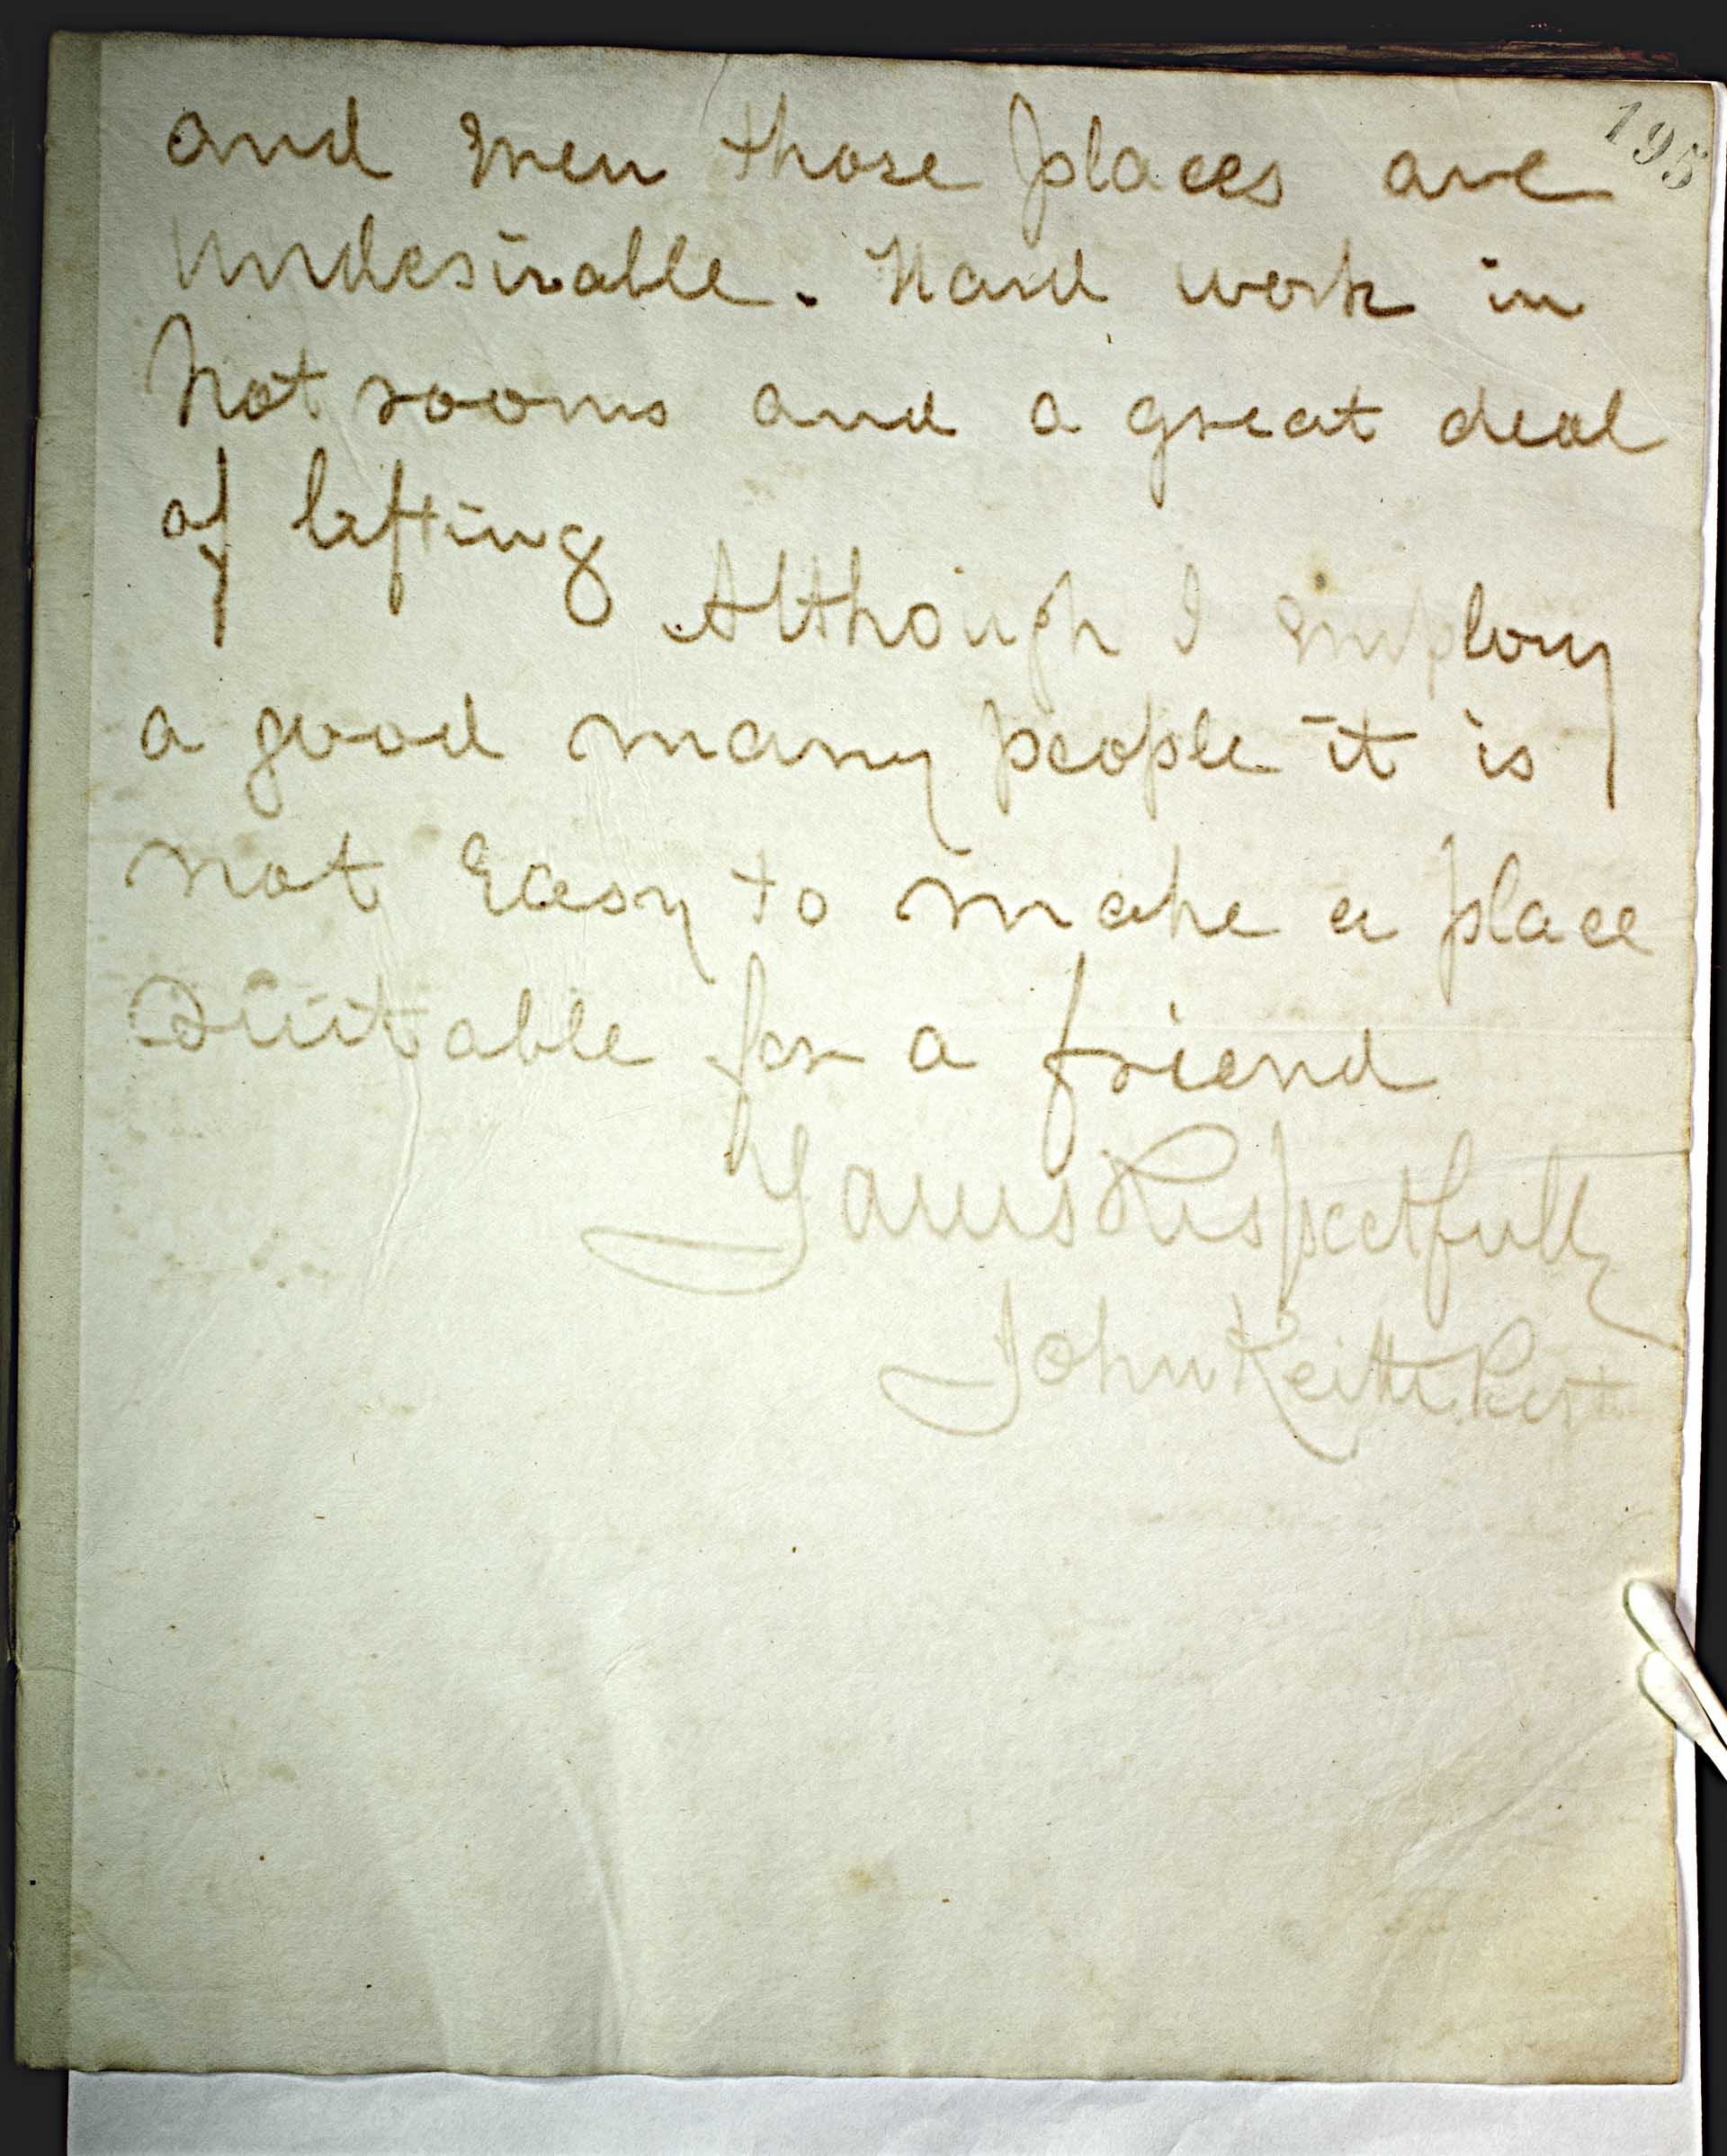 195
and men those places are
undesirable. Hard work in
hot rooms and a great deal
of lifting
Although I employ
a good many people it is
not Easy to make a place
Suitable for a friend
Yours Respectfully
John Keith